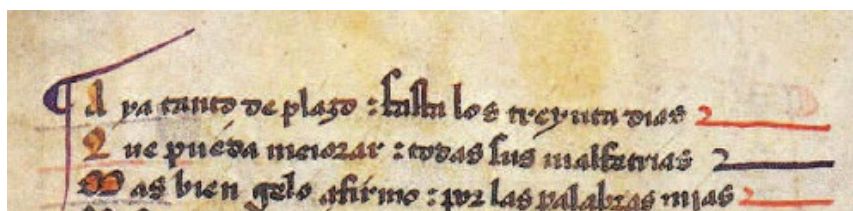 A ya tanto de plazo : fasta los treynta dias
Q ue pueda meiorar : todas sus malfetrias
M as bien gelo afirmo : por las palabras mias